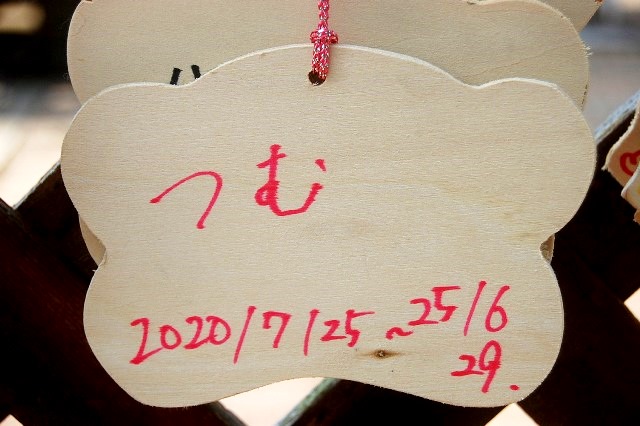 つむ
2020/7/25~25/6
29.